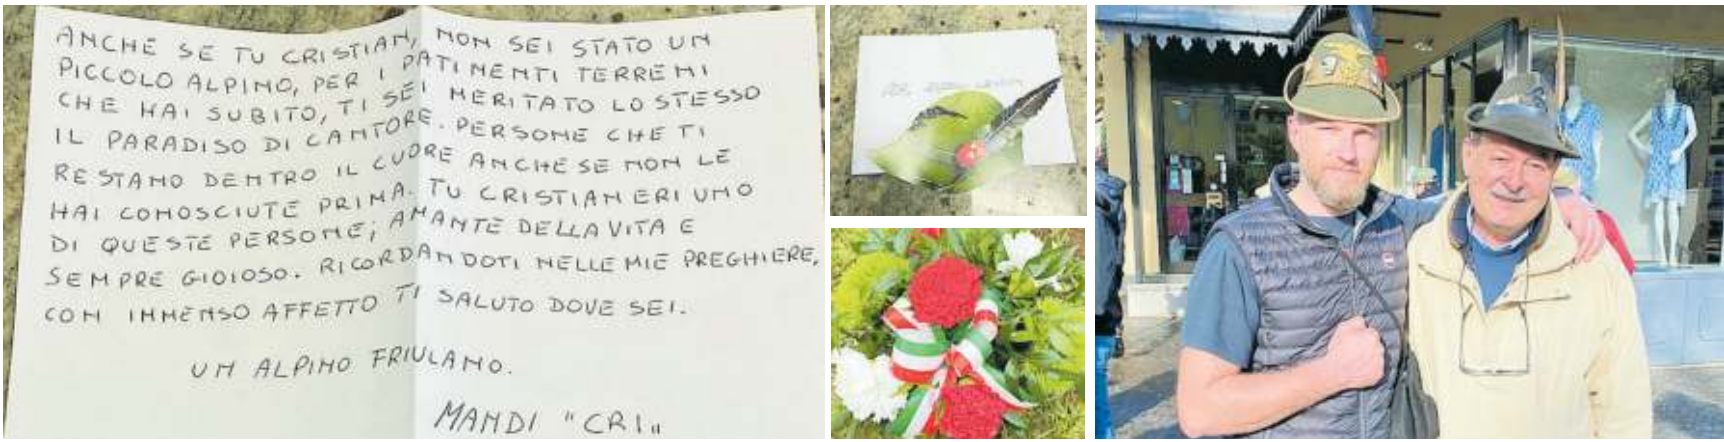 ANCHE SE TU CRISTIAN, NON SEI STATO UN
PICCOLO ALPINO, PER I PATIMENTI TERRENI
CHE HAI SUBITO, TI SEI MERITATO LO STESSO
IL PARADISO DI CANTORE. PERSONE CHE TI
RESTANO DENTRO IL CUORE ANCHE SE NON LE
HAI CONOSCIUTE PRIMA. TU CRISTIAN ERI UNO
DI QUESTE PERSONE, AMANTE DELLA VITA E
SEMPRE GIOIOSO. RICORDANDOTI NELLE MIE PREGHIERE,
CON IMMENSO AFFETTO TI SALUTO DOVE SEI.
UN ALPINO FRIULANO.
MANDI "CRI"